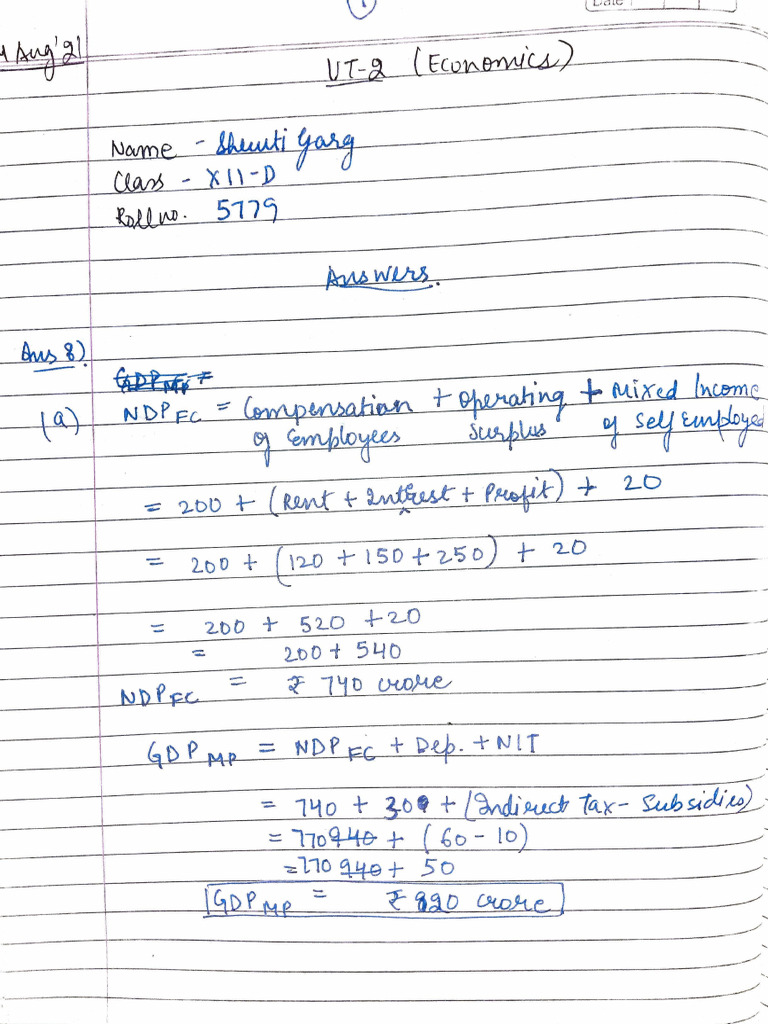 1
Date
Aug'21
UT-2 (Economics)
Name - Shruti Garg
Class - XII-D
Roll no. 5779
Answers.
Ans 8)
GDP MP =
(a) NDP FC = Compensation + Operating + Mixed Income
of Employees Surplus of Self Employed
= 200 + (Rent + Interest + Profit) + 20
= 200 + (120 + 150 + 250) + 20
= 200 + 520 + 20
= 200 + 540
NDP FC = ₹ 740 crore
GDP MP = NDP FC + Dep. + NIT
= 740 + 30 + (Indirect Tax - Subsidies)
= 770 940 + (60 - 10)
= 770 940 + 50
GDP MP = ₹ 820 crore